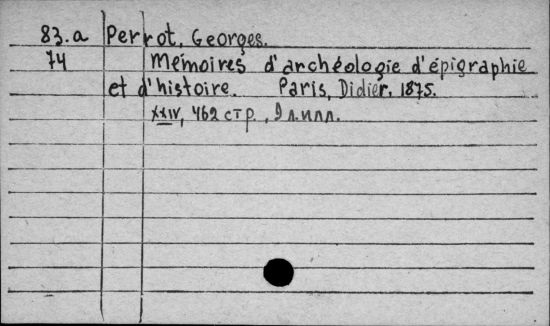 83.a Perrot, Georges.
74 Mémoires d'archéologie d'épigraphie
et d'histoire. Paris, Didier, 1875.
XXIV, 462 стр., 9 л.илл.